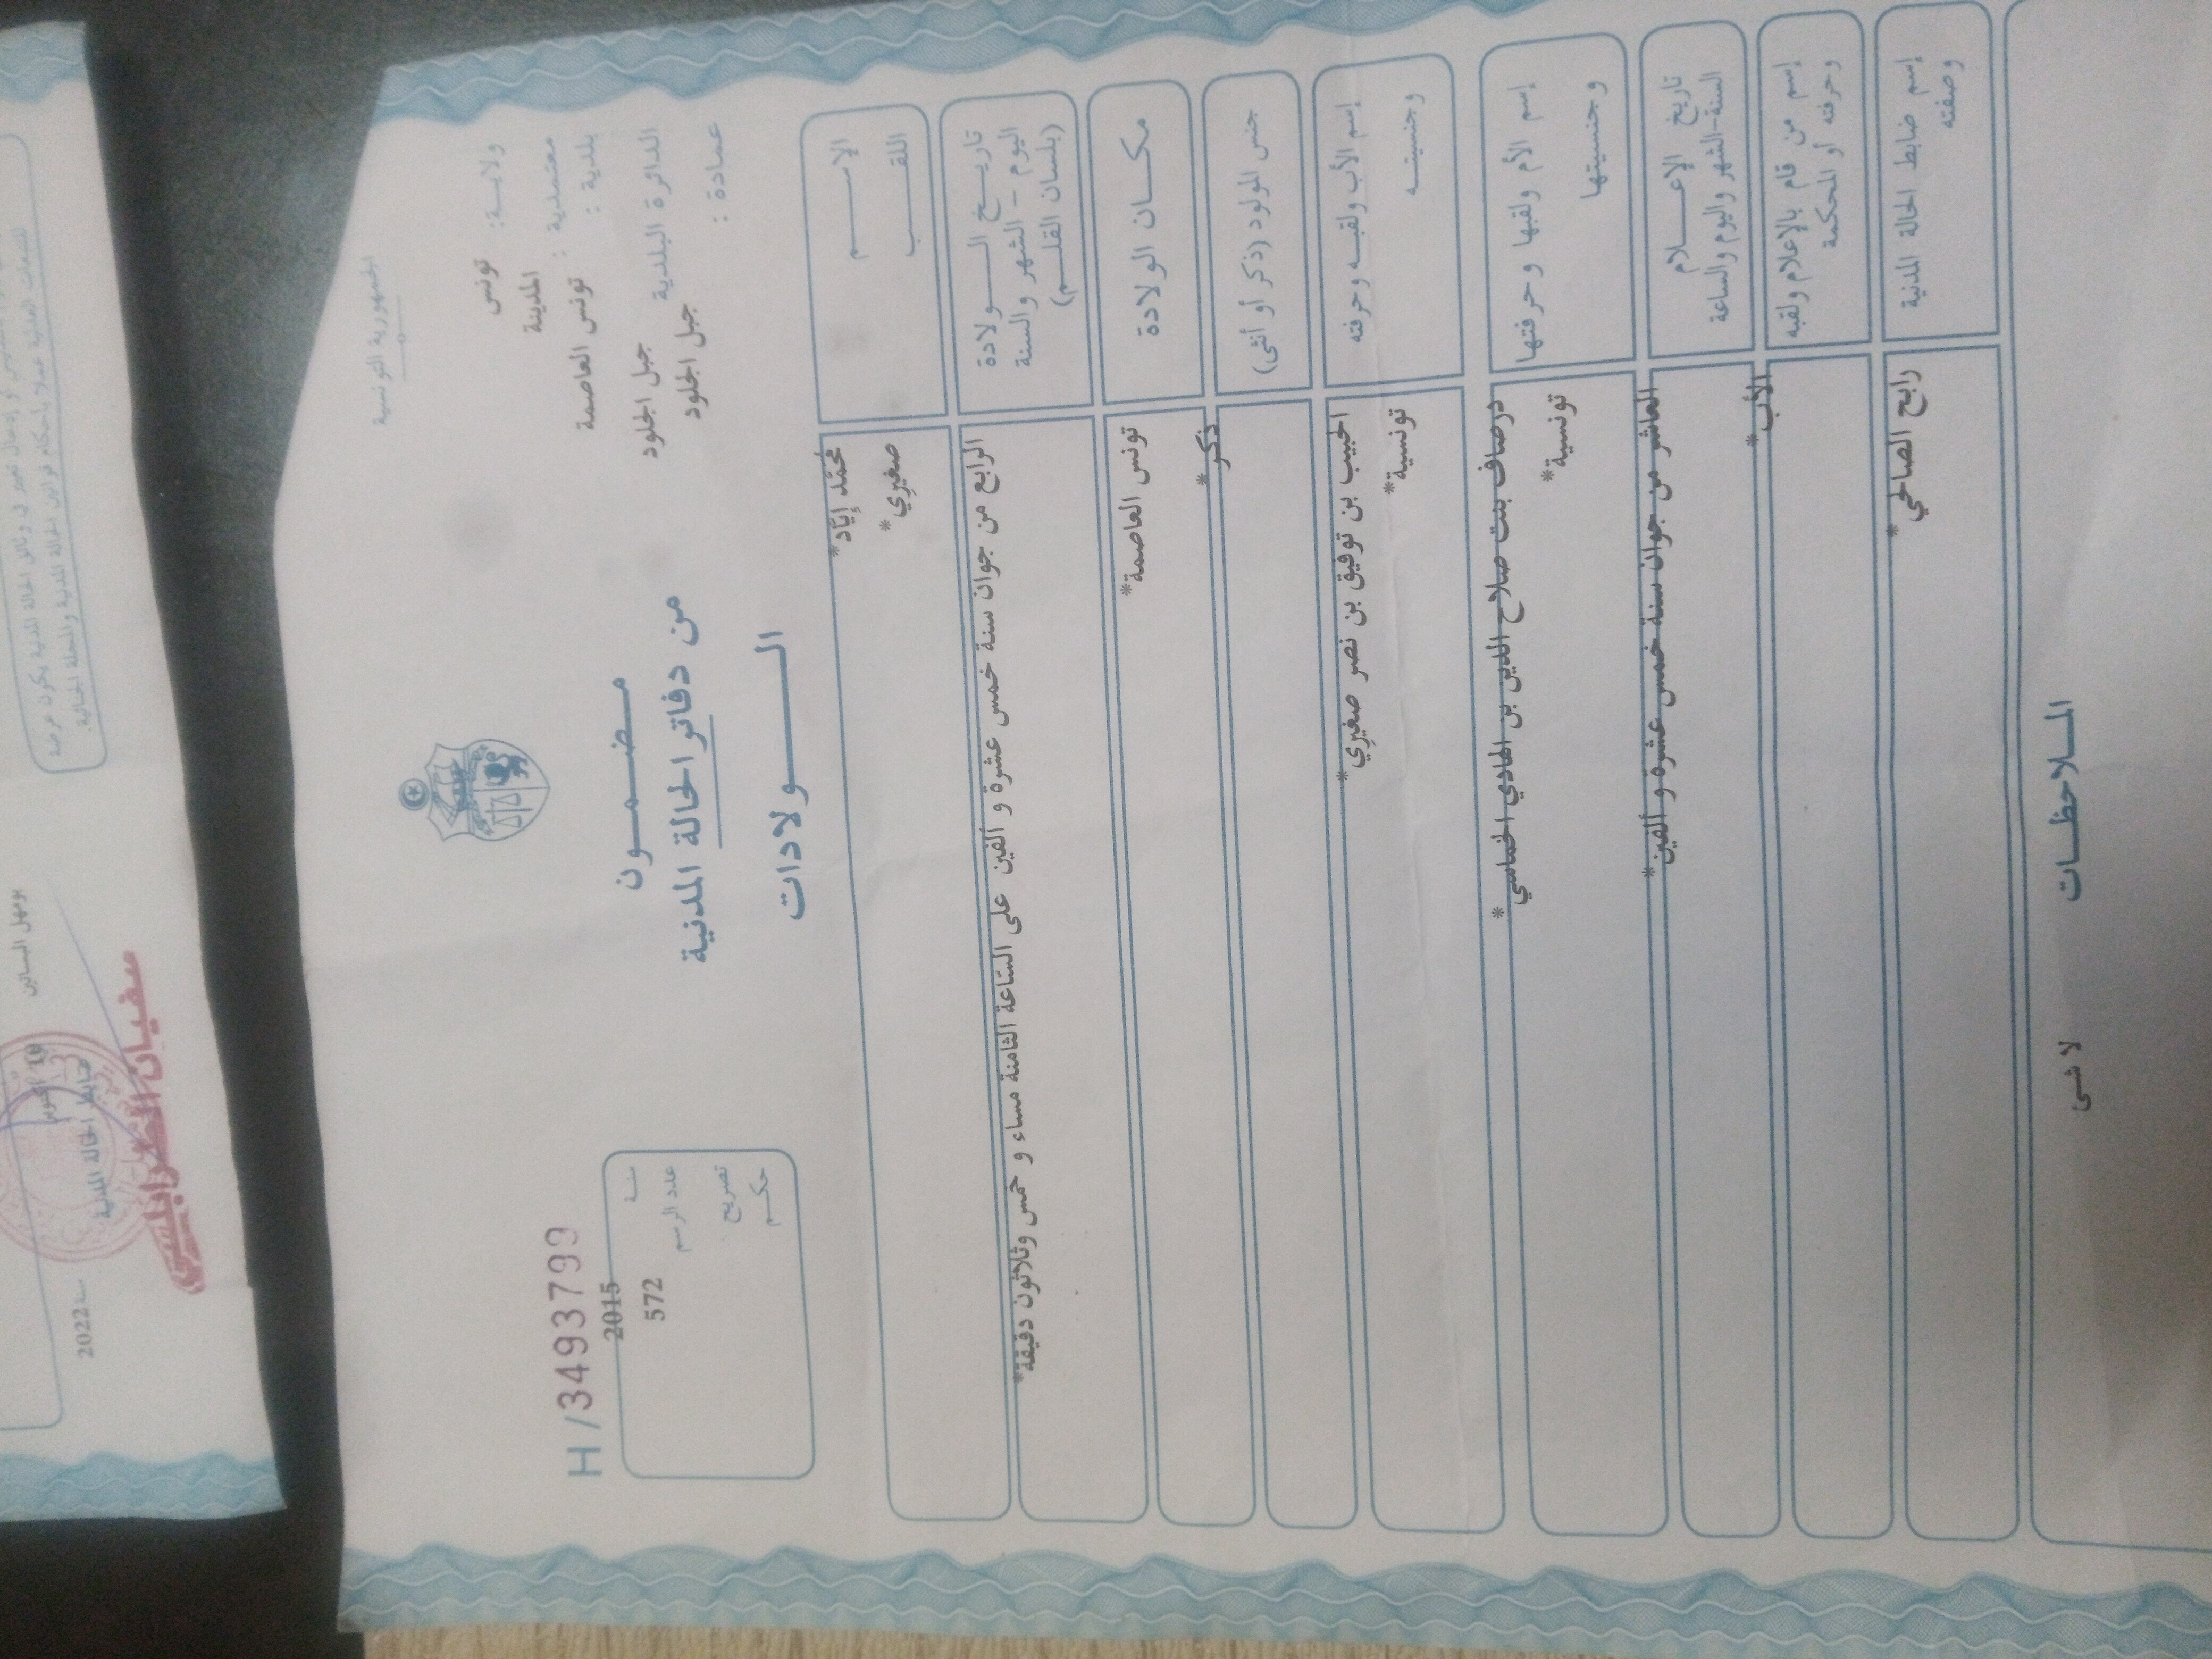 الجمهورية التونسية
ولايـة: تونس
معتمدية : المدينة
بلدية : تونس العاصمة
الدائرة البلدية جبل الجلود
عمادة : جبل الجلود
مـضـمـون
من دفاتر الحالة المدنية
الـولادات
H/3493799
سنة 2015
عدد الرسم 572
تصريح
حكـم
الإسـم محمّد إيّاد*
اللقـب صغيري*
تاريـخ الـولادة
اليوم – الشهر والسنة
(بلسان القلـم)
الرابع من جوان سنة خمس عشرة و ألفين على الساّعة الثامنة مساء و خمس وثلاثون دقيقة*
مكـان الولادة تونس العاصمة*
جنس المولود (ذكر أو أنثى) ذكر*
إسم الأب ولقبـه وحرفته الحبيب بن توفيق بن نصر صغيري*
وجنسيتـه تونسية*
إسم الأم ولقبها وحرفتها درصاف بنت صلاح الدين بن الهادي الخماسي*
وجنسيتها تونسية*
تاريخ الإعـلام
السنة-الشهر واليوم والساعة
العاشر من جوان سنة خمس عشرة و ألفين*
إسم من قام بالإعلام ولقبه
وحرفته أو المحكمة
الأب*
إسم ضابط الحالة المدنية
وصفته
رابح الصالحي*
المـلاحظـات
لا شئ
بومهل البساتين
سنة 2022
ضابط الحالة المدنية
سفيان الطرابلسي